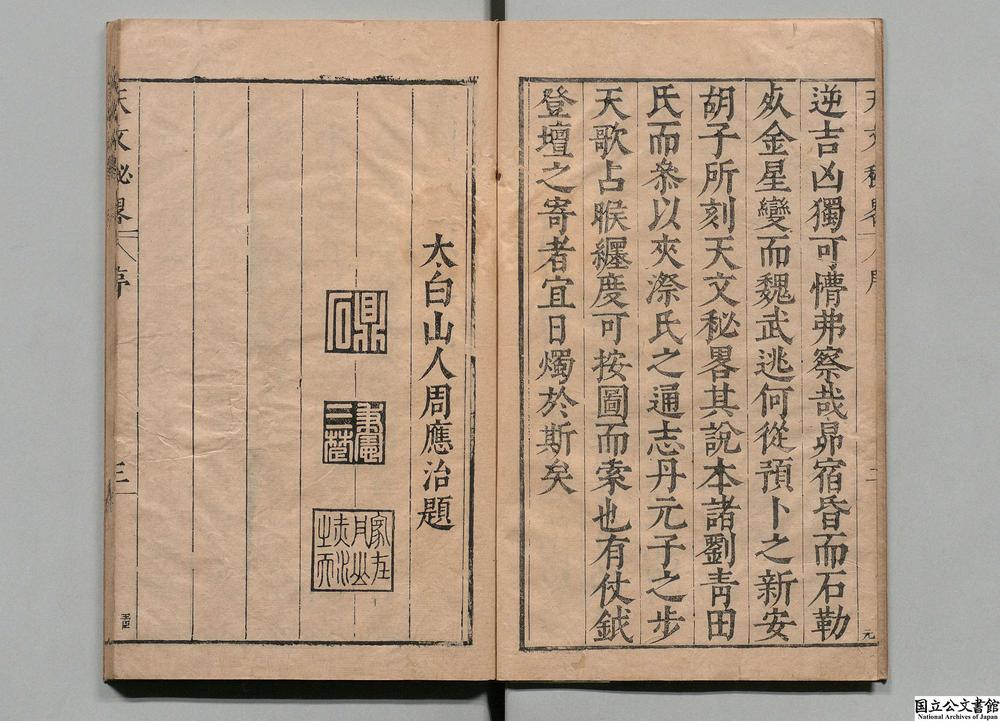 逆吉凶獨可懵弗察哉昴宿昏而石勒
敗金星變而魏武逃何從預卜之新安
胡子所刻天文秘畧其說本諸劉青田
氏而叅以夾漈氏之通志丹元子之步
天歌占睺纏度可按圖而索也有仗鉞
登壇之寄者宜日燭於斯矣
太白山人周應治題
天文秘畧
序
三
国立公文書館
National Archives of Japan